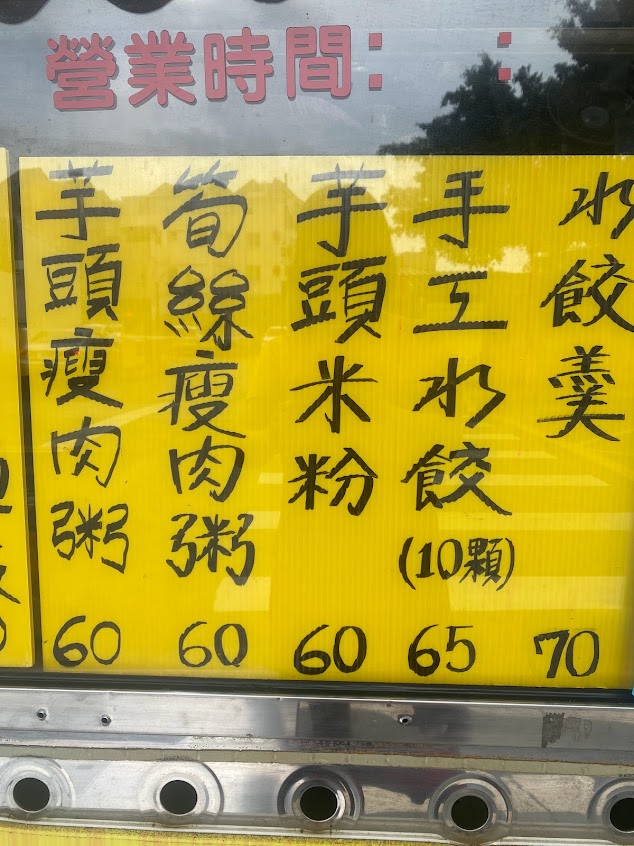 營業時間: :
水餃羹
70
手工水餃
(10顆)
65
芋頭米粉
60
筍絲瘦肉粥
60
芋頭瘦肉粥
60